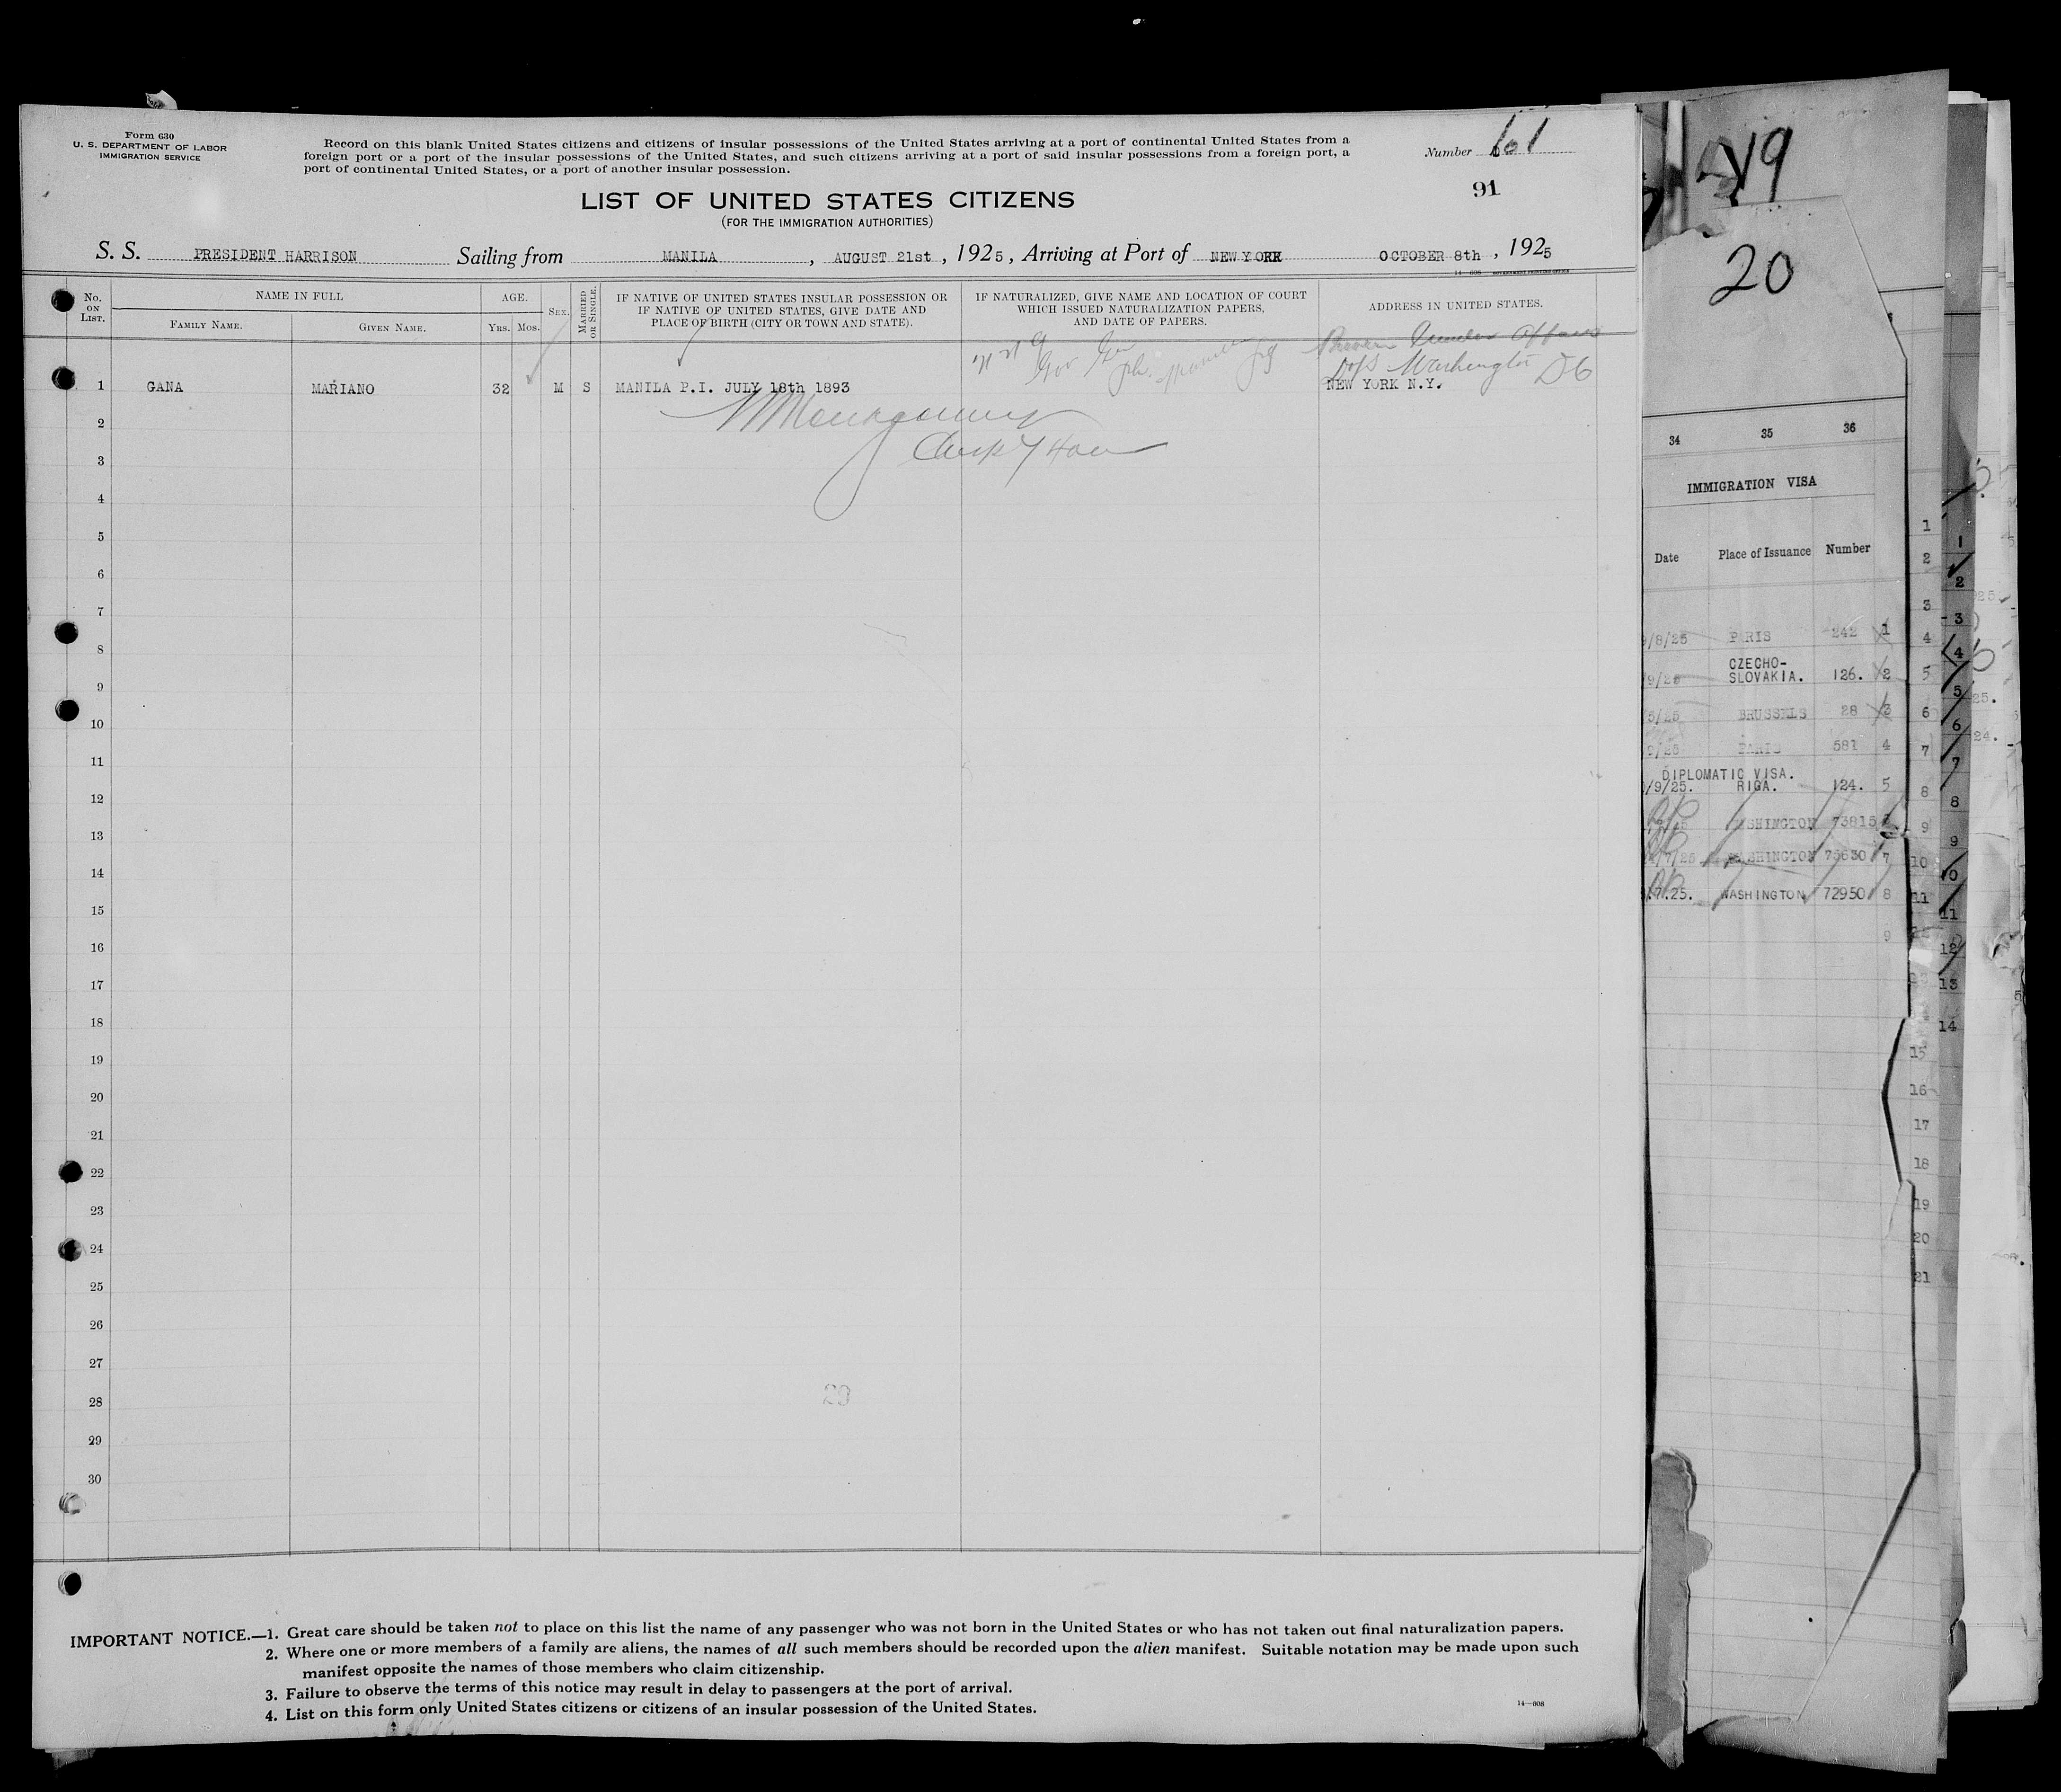 Form 630
U. S. DEPARTMENT OF LABOR
IMMIGRATION SERVICE
Record on this blank United States citizens and citizens of insular possessions of the United States arriving at a port of continental United States from a
foreign port or a port of the insular possessions of the United States, and such citizens arriving at a port of said insular possessions from a foreign port, a
port of continental United States, or a port of another insular possession.
Number 101
91
LIST OF UNITED STATES CITIZENS
(FOR THE IMMIGRATION AUTHORITIES)
S. S. PRESIDENT HARRISON Sailing from MANILA, AUGUST 21st, 1925, Arriving at Port of NEW YORK OCTOBER 8th, 1925
No. ON LIST.
NAME IN FULL
FAMILY NAME.
GIVEN NAME.
AGE.
YRS. MOS.
SEX.
MARRIED OR SINGLE.
IF NATIVE OF UNITED STATES INSULAR POSSESSION OR
IF NATIVE OF UNITED STATES, GIVE DATE AND
PLACE OF BIRTH (CITY OR TOWN AND STATE).
IF NATURALIZED, GIVE NAME AND LOCATION OF COURT
WHICH ISSUED NATURALIZATION PAPERS,
AND DATE OF PAPERS.
ADDRESS IN UNITED STATES.
Washington DC
1 GANA MARIANO 32 M S MANILA P.I. JULY 18th 1893 NEW YORK N.Y.
2
3
4
5
6
7
8
9
10
11
12
13
14
15
16
17
18
19
20
21
22
23
24
25
26
27
28
29
30
IMPORTANT NOTICE.—1. Great care should be taken not to place on this list the name of any passenger who was not born in the United States or who has not taken out final naturalization papers.
2. Where one or more members of a family are aliens, the names of all such members should be recorded upon the alien manifest. Suitable notation may be made upon such
manifest opposite the names of those members who claim citizenship.
3. Failure to observe the terms of this notice may result in delay to passengers at the port of arrival.
4. List on this form only United States citizens or citizens of an insular possession of the United States.
14—608
20
34 35 36
IMMIGRATION VISA
Date Place of Issuance Number
/8/25 PARIS 242 1
9/25 CZECHO-
SLOVAKIA. 126. 2
5/25 BRUSSELS 28 3
9/25 PARIS 581 4
DIPLOMATIC VISA.
/9/25. RIGA. 124. 5
WASHINGTON 73815
/7/25 WASHINGTON 75630 7
.7.25. WASHINGTON 72950 8
9